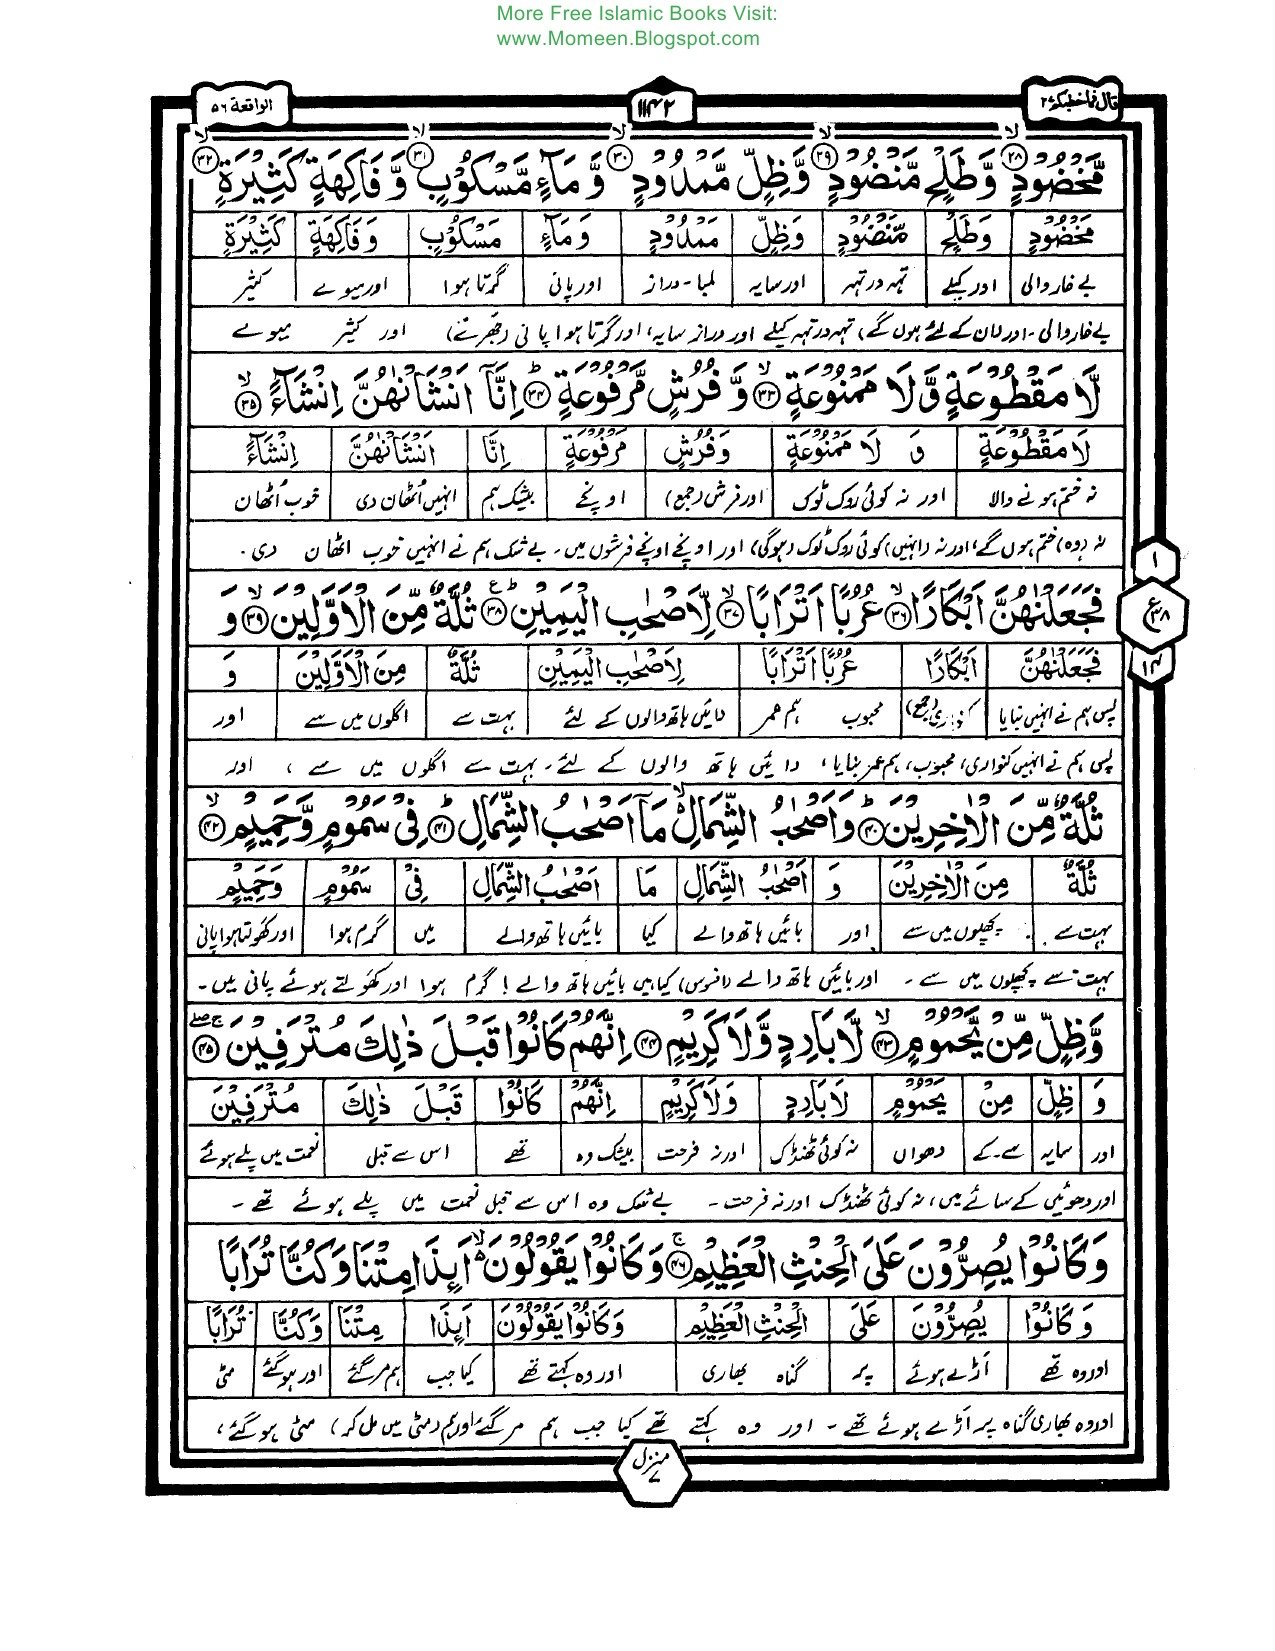 More Free Islamic Books Visit:
www.Momeen.Blogspot.com
قال فما خطبكم ٢٧
١١٤٢
الواقعة ٥٦
مَّخْضُوْدٍ ۙ﴿۲۸﴾ وَّطَلْحٍ مَّنْضُوْدٍ ۙ﴿۲۹﴾ وَّظِلٍّ مَّمْدُوْدٍ ۙ﴿۳۰﴾ وَّمَآءٍ مَّسْكُوْبٍ ۙ﴿۳۱﴾ وَّفَاكِهَةٍ كَثِيْرَةٍ ۙ﴿۳۲﴾
مَّخْضُوْدٍ وَّطَلْحٍ مَّنْضُوْدٍ وَّظِلٍّ مَّمْدُوْدٍ وَّمَآءٍ مَّسْكُوْبٍ وَّفَاكِهَةٍ كَثِيْرَةٍ
بے خار والی اور کیلے تہہ در تہہ اور سایہ لمبا - دراز اور پانی گرتا ہوا اور میوے کثیر
بے خار والی - اور (ان کے لئے ہوں گے) تہہ در تہہ کیلے اور دراز سایہ، اور گرتا ہوا پانی (جھرنے) اور کثیر میوے
لَّا مَقْطُوْعَةٍ وَّلَا مَمْنُوْعَةٍ ۙ﴿۳۳﴾ وَّفُرُشٍ مَّرْفُوْعَةٍ ؕ﴿۳۴﴾ اِنَّآ اَنْشَاْنٰهُنَّ اِنْشَآءً ۙ﴿۳۵﴾
لَا مَقْطُوْعَةٍ وَ لَا مَمْنُوْعَةٍ وَفُرُشٍ مَّرْفُوْعَةٍ اِنَّا اَنْشَاْنٰهُنَّ اِنْشَآءً
نہ ختم ہونے والا اور نہ کوئی روک ٹوک اور فرش (جمع) اونچے بیشک ہم انہیں اُٹھان دی خوب اُٹھان
نہ (وہ) ختم ہوں گے، اور نہ (انہیں) کوئی روک ٹوک (ہوگی) اور اونچے اونچے فرشوں میں - بے شک ہم نے انہیں خوب اٹھان دی -
فَجَعَلْنٰهُنَّ اَبْكَارًا ۙ﴿۳۶﴾ عُرُبًا اَتْرَابًا ۙ﴿۳۷﴾ لِّاَصْحٰبِ الْيَمِيْنِ ؕ﴿۳۸﴾ ثُلَّةٌ مِّنَ الْاَوَّلِيْنَ ۙ﴿۳۹﴾ وَ
فَجَعَلْنٰهُنَّ اَبْكَارًا عُرُبًا اَتْرَابًا لِاَصْحٰبِ الْيَمِيْنِ ثُلَّةٌ مِنَ الْاَوَّلِيْنَ وَ
پس ہم نے انہیں بنایا کنواری (جمع) محبوب ہم عمر دائیں ہاتھ والوں کے لئے بہت سے اگلوں میں سے اور
پس ہم نے انہیں کنواری، محبوب، ہم عمر بنایا، دائیں ہاتھ والوں کے لئے - بہت سے اگلوں میں سے ، اور
ثُلَّةٌ مِّنَ الْاٰخِرِيْنَ ؕ﴿۴۰﴾ وَاَصْحٰبُ الشِّمَالِ ۙ مَآ اَصْحٰبُ الشِّمَالِ ؕ﴿۴۱﴾ فِيْ سَمُوْمٍ وَّحَمِيْمٍ ۙ﴿۴۲﴾
ثُلَّةٌ مِنَ الْاٰخِرِيْنَ وَ اَصْحٰبُ الشِّمَالِ مَا اَصْحٰبُ الشِّمَالِ فِيْ سَمُوْمٍ وَحَمِيْمٍ
بہت سے پچھلوں میں سے اور بائیں ہاتھ والے کیا بائیں ہاتھ والے میں گرم ہوا اور کھولتا ہوا پانی
بہت سے پچھلوں میں سے - اور بائیں ہاتھ والے (افسوس) کیا ہیں بائیں ہاتھ والے! گرم ہوا اور کھولتے ہوئے پانی میں -
وَّظِلٍّ مِّنْ يَّحْمُوْمٍ ۙ﴿۴۳﴾ لَّا بَارِدٍ وَّلَا كَرِيْمٍ ﴿۴۴﴾ اِنَّهُمْ كَانُوْا قَبْلَ ذٰلِكَ مُتْرَفِيْنَ ۚۖ﴿۴۵﴾
وَ ظِلٍّ مِنْ يَحْمُوْمٍ لَا بَارِدٍ وَلَا كَرِيْمٍ اِنَّهُمْ كَانُوْا قَبْلَ ذٰلِكَ مُتْرَفِيْنَ
اور سایہ سے - کے دھواں نہ کوئی ٹھنڈک اور نہ فرحت بیشک وہ تھے اس سے قبل نعمت میں پلے ہوئے
اور دھوئیں کے سائے میں، نہ کوئی ٹھنڈک اور نہ فرحت - بے شک وہ اس سے قبل نعمت میں پلے ہوئے تھے -
وَكَانُوْا يُصِرُّوْنَ عَلَى الْحِنْثِ الْعَظِيْمِ ۚ﴿۴۶﴾ وَكَانُوْا يَقُوْلُوْنَ ۙ۬ اَئِذَا مِتْنَا وَكُنَّا تُرَابًا
وَكَانُوْا يُصِرُّوْنَ عَلَى الْحِنْثِ الْعَظِيْمِ وَكَانُوْا يَقُوْلُوْنَ اَئِذَا مِتْنَا وَكُنَّا تُرَابًا
اور وہ تھے اَڑے ہوئے پر گناہ بھاری اور وہ کہتے تھے کیا جب ہم مر گئے اور ہو گئے مٹی
اور وہ بھاری گناہ پر اَڑے ہوئے تھے - اور وہ کہتے تھے کیا جب ہم مر گئے اور ہم (مٹی میں مل کر) مٹی ہو گئے،
١
ع
٣٨
١٤
منزل ٧